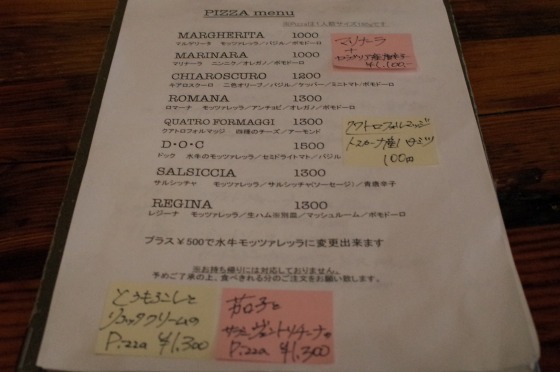 PIZZA menu
MARGHERITA 1000
マルゲリータ モッツァレッラ/バジル/ポモドーロ
MARINARA 1000
マリナーラ ニンニク/オレガノ/ポモドーロ
CHIAROSCURO 1200
キアロスクーロ 二色オリーブ/バジル/ケッパー/ミニトマト/ポモドーロ
ROMANA 1300
ロマーナ モッツァレッラ/アンチョビ/オレガノ/ポモドーロ
QUATRO FORMAGGI 1300
クアトロフォルマッジ 四種のチーズ/アーモンド
D・O・C 1500
ドック 水牛のモッツァレッラ/セミドライトマト/バジル
SALSICCIA 1300
サルシッチャ モッツァレッラ/サルシッチャ(ソーセージ)/青唐辛子
REGINA 1300
レジーナ モッツァレッラ/生ハム※別皿/マッシュルーム/ポモドーロ
プラス¥500で水牛モッツァレッラに変更出来ます
※お持ち帰りには対応しておりません。
予めご了承の上、食べきれる分のご注文をお願い致します。
マリナーラ
+
¥1,100-
クワトロフォルマッジ
トスカーナ産ハチミツ
100円
とうもろこしと
リコッタクリームの
Pizza ¥1,300
茄子と
Pizza ¥1,300